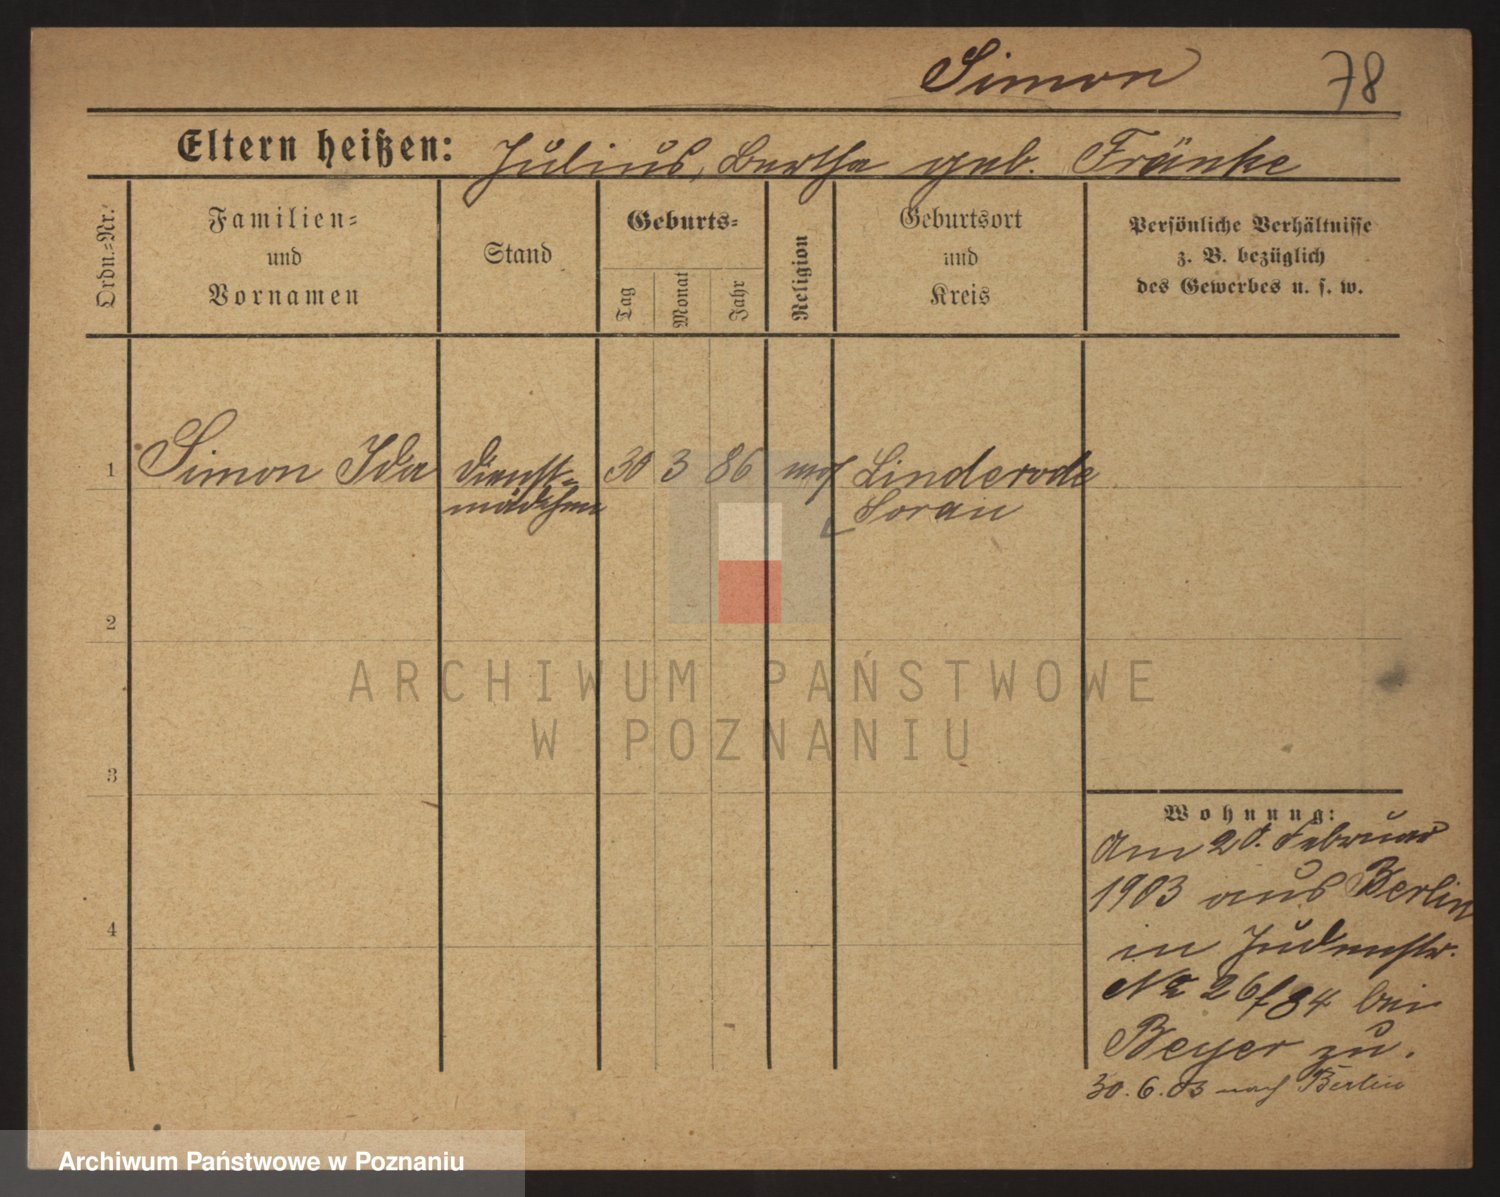 Simon 78
Eltern heißen: Julius, Bertha geb. Fränke
Ordn.=Nr.
Familien=
und
Vornamen
Stand
Geburts=
Tag
Monat
Jahr
Religion
Geburtsort
und
Kreis
Persönliche Verhältnisse
z. B. bezüglich
des Gewerbes u. s. w.
1 Simon Ida Dienst= 30 3 86 Linderode
mädchen Sorau
2
3
4
Wohnung:
Am 20. Februar
1903 aus Berlin
in Judenstr.
No 26/84 bei
Beyer zu.
30.6.03 nach Berlin
ARCHIWUM PAŃSTWOWE
W POZNANIU
Archiwum Państwowe w Poznaniu